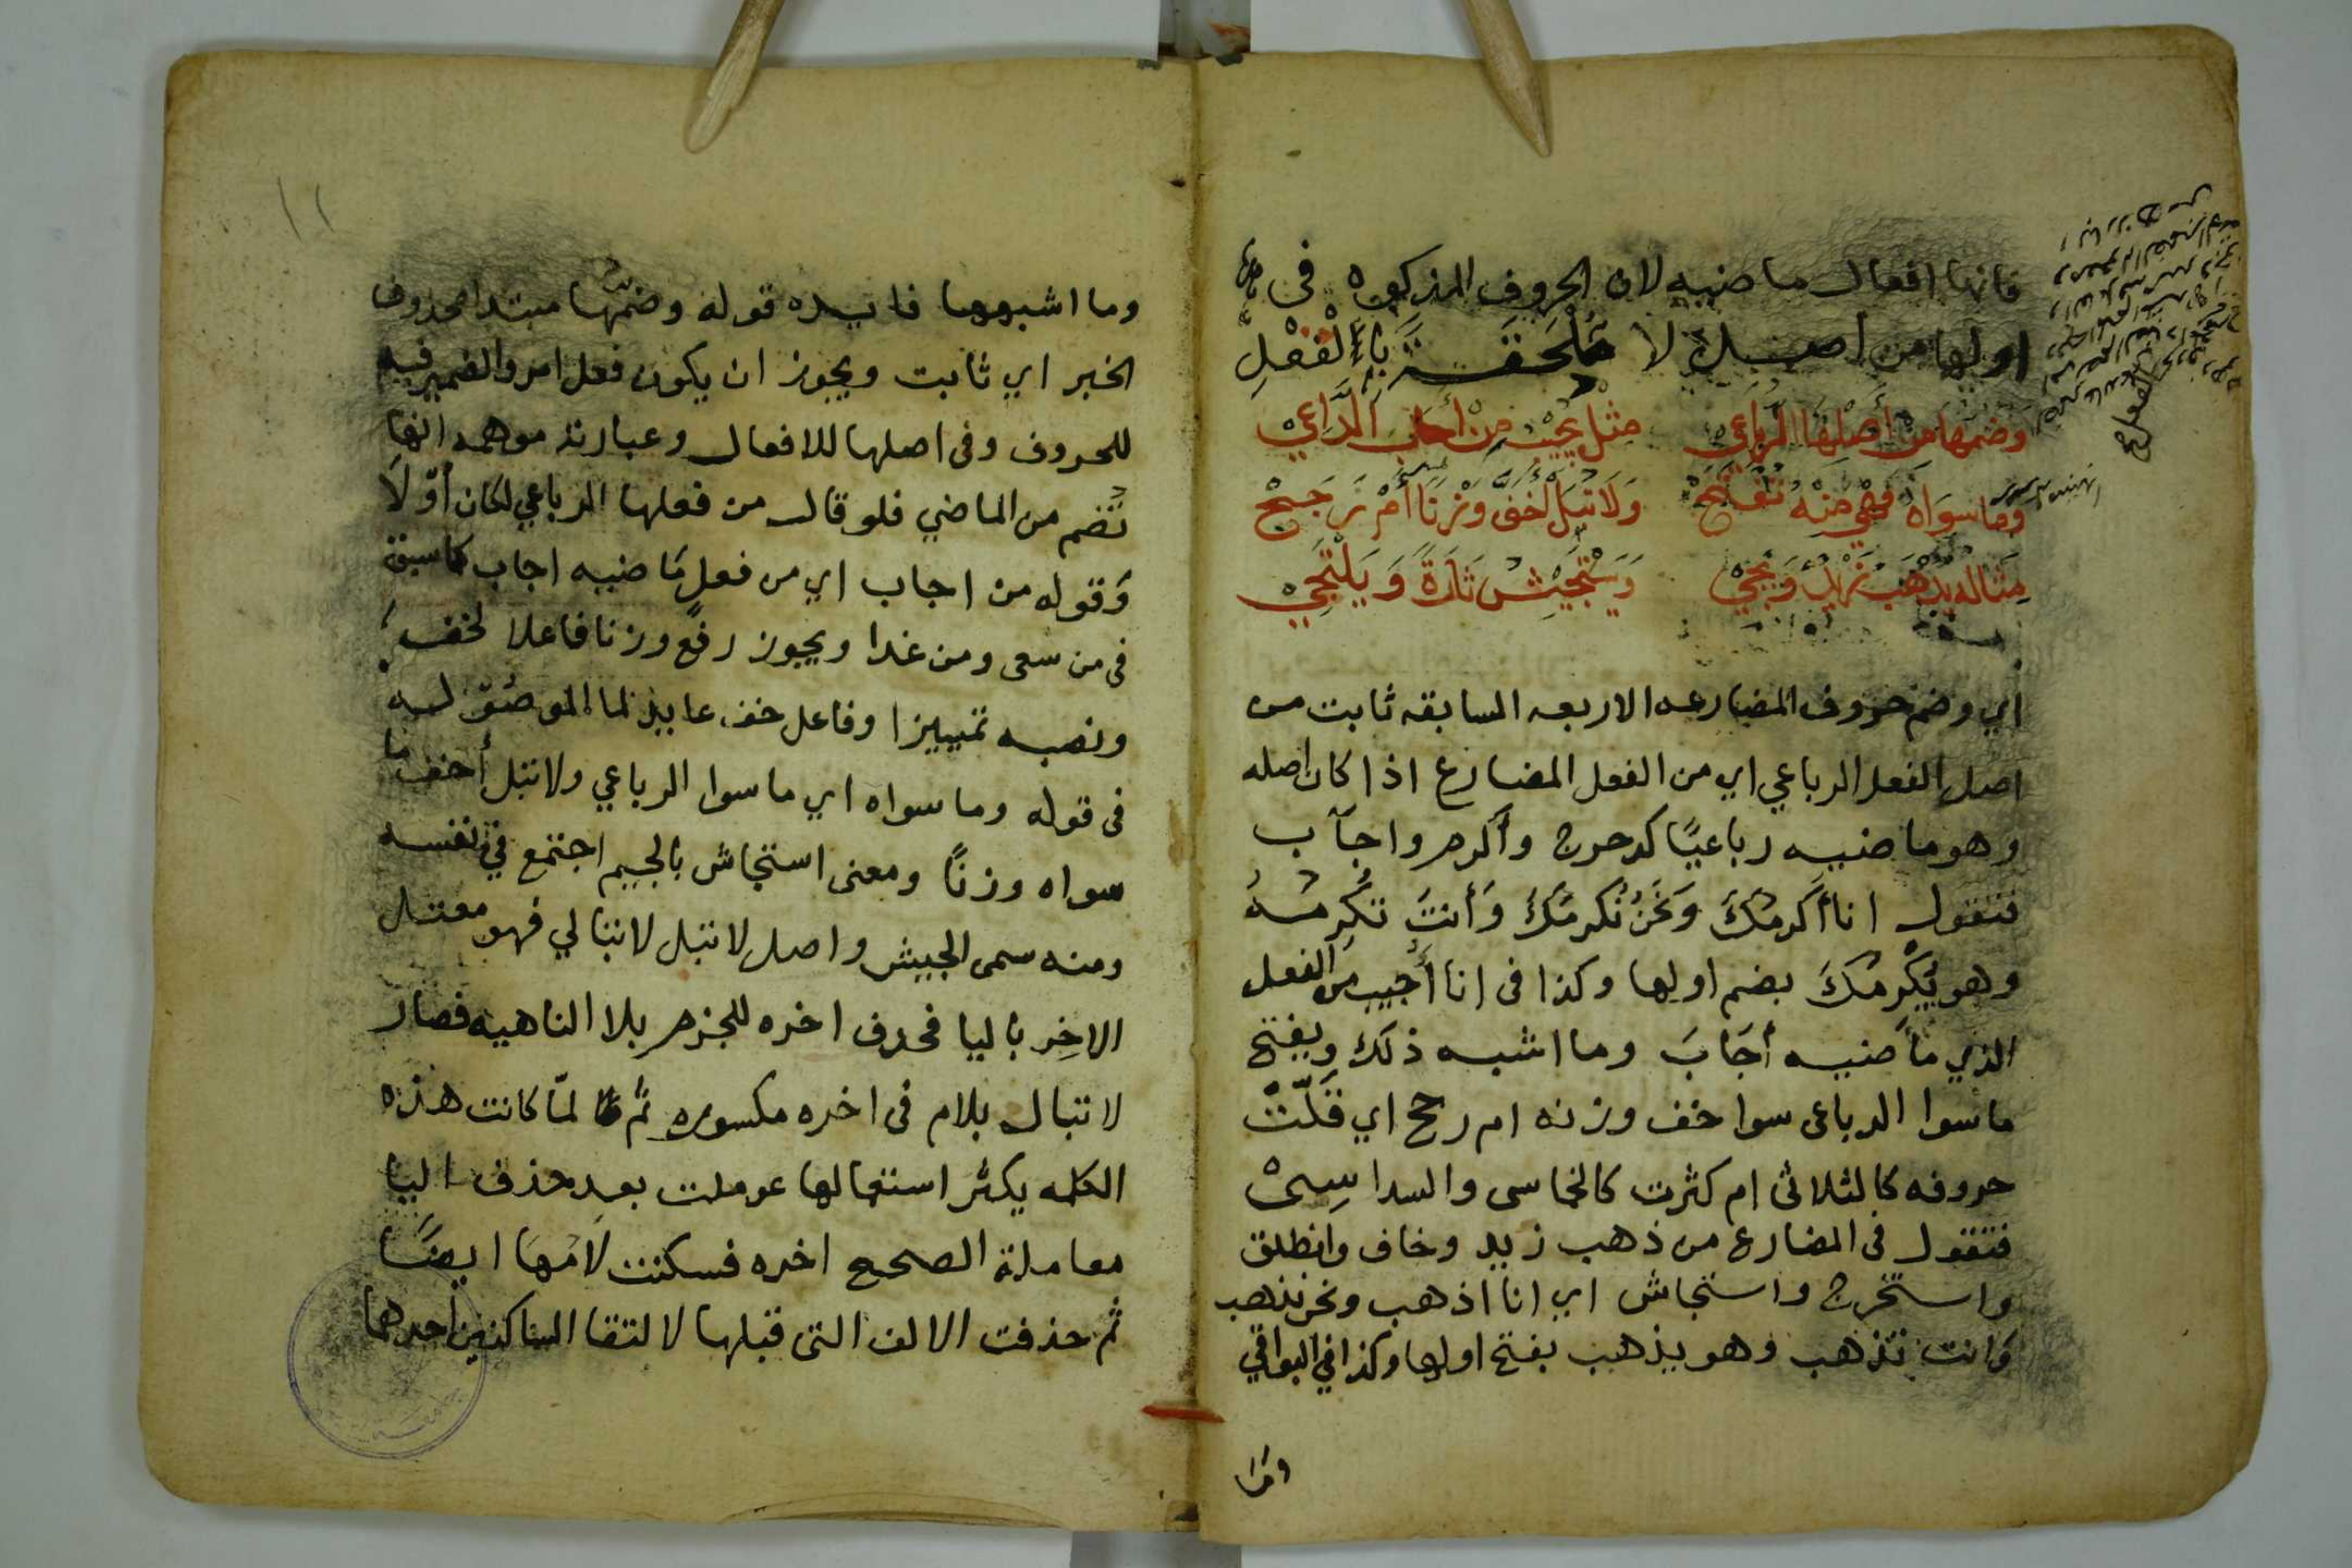 فانها افعال ماضيه لان الحروف المذكوره في
اولها من اصل لا ملحقة باء الفعل
وضمها من أصلها الرباعي مثل يجيب من أجاب الداعي
وما سواه فهي منه تفتتح ولا تبل أخف وزنا أم رجح
مثاله يذهب زيد ويجي ويستجيش تارة ويلتجي
اي وضم حروف المضارعه الاربعه السابقه ثابت من
اصل الفعل الرباعي اي من الفعل المضارع اذا كان اصله
وهو ماضيه رباعيًا كدحرج وأكرم واجاب
فتقول انا أكرمك ونحن نكرمك وأنت تكرمه
وهو يكرمك بضم اولها وكذا في انا أجيب من الفعل
الذي ماضيه أجاب وما اشبه ذلك ويفتح
ما سوا الرباعي سوا خف وزنه ام رجح اي قلّت
حروفه كالثلاثي ام كثرت كالخماسي والسداسي
فتقول في المضارع من ذهب زيد وخاف وانطلق
واستخرج واستجاش اي انا اذهب ونحن نذهب
وانت تذهب وهو يذهب بفتح اولها وكذا في البواقي
وما
١١
وما اشبهها فايده قوله وضمها مبتدا محذوف
الخبر اي ثابت ويجوز ان يكون فعل امر والضمير فيه
للحروف وفي اصلها للافعال وعبارته موهمه انها
تُضم من الماضي فلو قال من فعلها الرباعي لكان أوّلا
وقوله من اجاب اي من فعلٍ ماضيه اجاب كما سبق
في من سعى ومن غدا ويجوز رفع وزنا فاعلا لخف
ونصبه تمييزا وفاعل خف عايد لما الموصوله
في قوله وما سواه اي ما سوا الرباعي ولا تبل أخف ما
سواه وزنًا ومعنى استجاش بالجيم اجتمع في نفسه
ومنه سمى الجيش واصل لا تبل لا تبالي فهو معتل
الاخر باليا فحذف اخره للجزم بلا الناهيه فصار
لا تبال بلام في اخره مكسوره ثم لمّا كانت هذه
الكلمه يكثر استعمالها عوملت بعد حذف اليا
معاملة الصحيح اخره فسكنت لامها ايضًا
ثم حذفت الالف التي قبلها لالتقا الساكنين احدهما